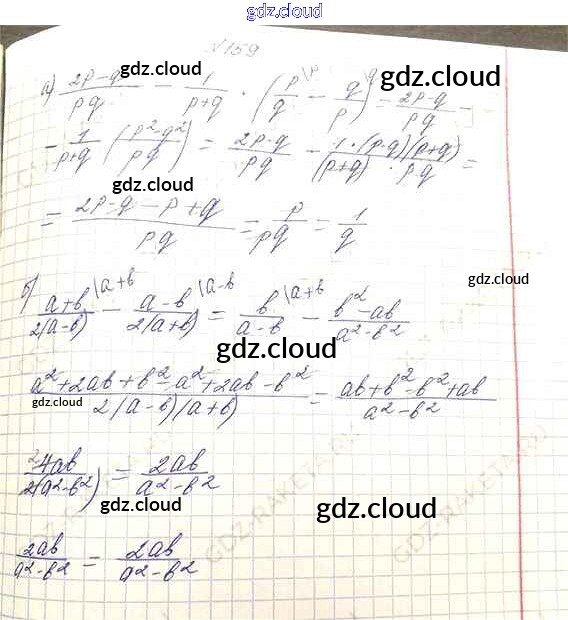 gdz.cloud
N 159
gdz.cloud
gdz.cloud
а) (2p-q)/pq - 1/(p+q) · (p/q \p - q/p \q) = (2p-q)/pq -
- 1/(p+q) · ((p²-q²)/pq) = (2p-q)/pq - (1·(p-q)(p+q))/((p+q)·pq) =
gdz.cloud
gdz.cloud
= (2p-q-p+q)/pq = p/pq = 1/q
gdz.cloud
б) (a+b)/2(a-b) \a+b - (a-b)/2(a+b) \a-b = b/(a-b) \a+b - (b²-ab)/(a²-b²)
gdz.cloud
(a²+2ab+b²-a²+2ab-b²)/2(a-b)(a+b) = (ab+b²-b²+ab)/(a²-b²)
gdz.cloud
gdz.cloud
²4ab/2(a²-b²) = 2ab/(a²-b²)
gdz.cloud
gdz.cloud
2ab/(a²-b²) = 2ab/(a²-b²)
GDZ-RAKETA.RU
gdz.cloud